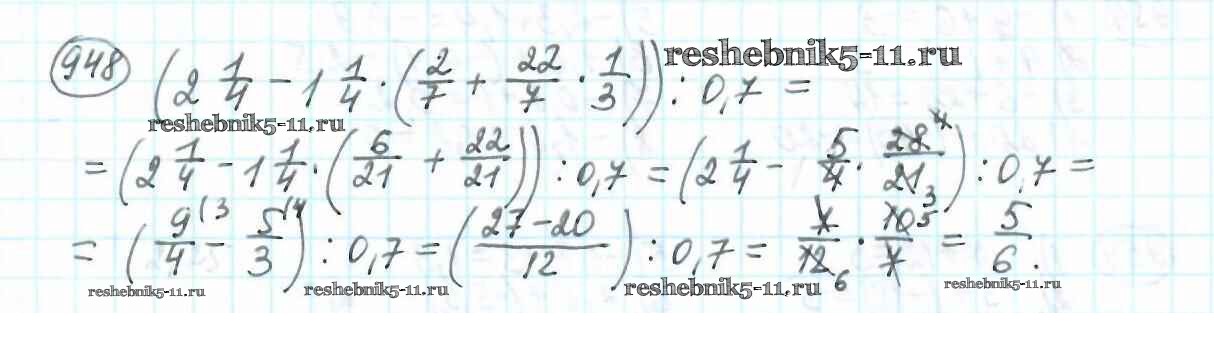 948 (2 1/4 - 1 1/4 · (2/7 + 22/7 · 1/3)) : 0,7 =
reshebnik5-11.ru
reshebnik5-11.ru
= (2 1/4 - 1 1/4 · (6/21 + 22/21)) : 0,7 = (2 1/4 - 5/4 · 28/21) : 0,7 =
4
3
= (9/4 - 5/3) : 0,7 = ((27-20)/12) : 0,7 = 7/12 · 10/7 = 5/6.
(3
(4
5
6
reshebnik5-11.ru
reshebnik5-11.ru
reshebnik5-11.ru
reshebnik5-11.ru